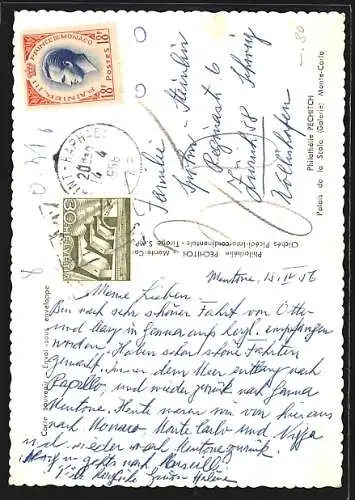 PRINCIPAUTÉ DE MONACO
RAINIER III
18F POSTES 18F
SAINT-RAPHAEL
20H30
14 4
1956
VAR
HELVETIA
30
Carte Souvenir - Envoi sous enveloppe
Philatélie PECHITCH - Monte-Carlo
Clichés Picédi-Intercontinentale - Tirage S.M.P.
Philatélie PECHITCH
Palais de la Scala (Galerie) Monte-Carlo
Familie
Steinlin
Reginastr 6
Zürich
Schweiz
Wollishofen
-.80
Mentone, 13. IV 56
Meine Lieben!
Bin nach sehr schöner Fahrt von Otto
und Mary in Genua aufs herzl. empfangen
worden. Haben schon schöne Fahrten
gemacht. Immer dem Meer entlang nach
Rapallo, und wieder zurück nach Genua
Mentone. Heute waren wir von hier aus
nach Monaco, Monte Carlo und Nizza
u. d. wieder nach Mentone zurück.
Morgen gehts nach Marseille
Helene